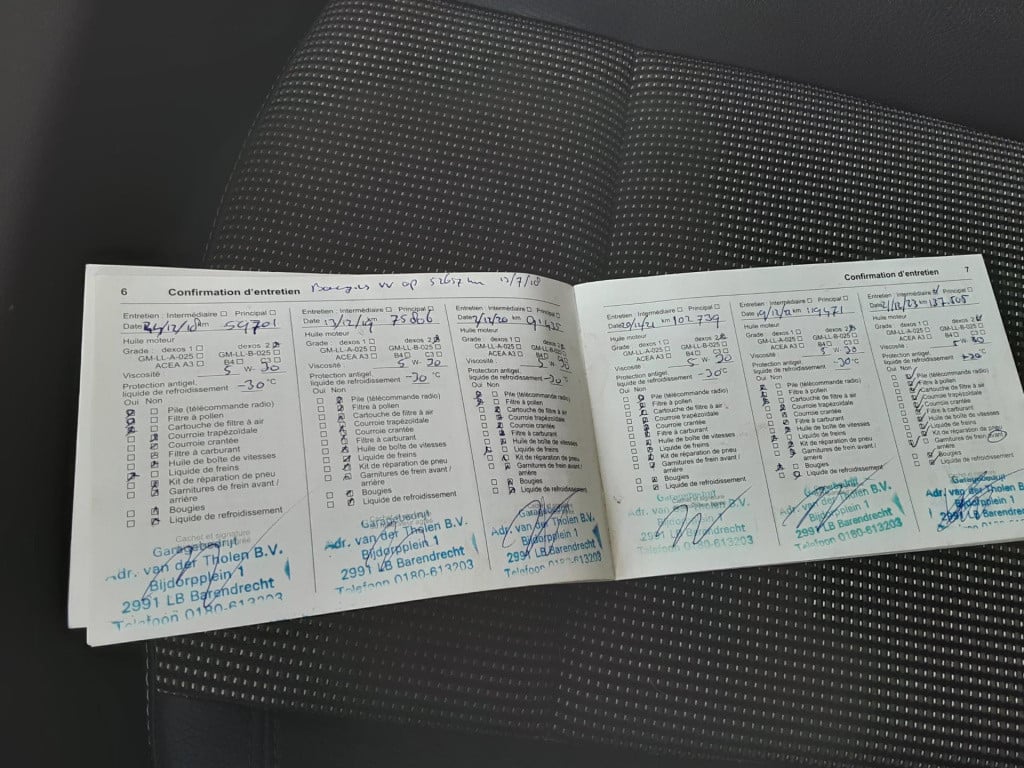 6 Confirmation d'entretien Bougies vv op 52657 km 13/7/18
Entretien : Intermédiaire ☐ Principal ☐
Date 24/12/18 km 59701
Huile moteur
Grade : dexos 1 ☐ dexos 2
GM-LL-A-025 ☐ GM-LL-B-025 ☐
ACEA A3 ☐ B4 ☐ C3 ☐
Viscosité : 5 W- 30
Protection antigel,
liquide de refroidissement -30 °C
Oui Non
Pile (télécommande radio)
Filtre à pollen
Cartouche de filtre à air
Courroie trapézoïdale
Courroie crantée
Filtre à carburant
Huile de boîte de vitesses
Liquide de freins
Kit de réparation de pneu
Garnitures de frein avant /
arrière
Bougies
Liquide de refroidissement
Cachet et signature
Garagebedrijf
Adr. van der Tholen B.V.
Bijdorpplein 1
2991 LB Barendrecht
Telefoon 0180-613203
Entretien : Intermédiaire ☐ Principal ☐
Date 13/12/19 km 75806
Huile moteur
Grade : dexos 1 ☐ dexos 2
GM-LL-A-025 ☐ GM-LL-B-025 ☐
ACEA A3 ☐ B4 ☐ C3 ☐
Viscosité : 5 W- 30
Protection antigel,
liquide de refroidissement -30 °C
Oui Non
Pile (télécommande radio)
Filtre à pollen
Cartouche de filtre à air
Courroie trapézoïdale
Courroie crantée
Filtre à carburant
Huile de boîte de vitesses
Liquide de freins
Kit de réparation de pneu
Garnitures de frein avant /
arrière
Bougies
Liquide de refroidissement
Garagebedrijf
Adr. van der Tholen B.V.
Bijdorpplein 1
2991 LB Barendrecht
Telefoon 0180-613203
Entretien : Intermédiaire ☐ Principal ☐
Date /12/20 km
Huile moteur
Grade : dexos 1 ☐ dexos 2
GM-LL-A-025 ☐ GM-LL-B-025 ☐
ACEA A3 ☐ B4 ☐ C3 ☐
Viscosité : 5 W 30
Protection antigel,
liquide de refroidissement -30 °C
Oui Non
Pile (télécommande radio)
Filtre à pollen
Cartouche de filtre à air
Courroie trapézoïdale
Courroie crantée
Filtre à carburant
Huile de boîte de vitesses
Liquide de freins
Kit de réparation de pneu
Garnitures de frein avant /
arrière
Bougies
Liquide de refroidissement
Garagebedrijf
Adr. van der Tholen B.V.
Bijdorpplein 1
2991 LB Barendrecht
Telefoon 0180-613203
Confirmation d'entretien 7
Entretien : Intermédiaire ☐ Principal ☐
Date 20/12/21 km 102 739
Huile moteur
Grade : dexos 1 ☐ dexos 2
GM-LL-A-025 ☐ GM-LL-B-025 ☐
ACEA A3 ☐ B4 ☐ C3 ☐
Viscosité : 5 W 30
Protection antigel,
liquide de refroidissement -30 °C
Oui Non
Pile (télécommande radio)
Filtre à pollen
Cartouche de filtre à air
Courroie trapézoïdale
Courroie crantée
Filtre à carburant
Huile de boîte de vitesses
Liquide de freins
Kit de réparation de pneu
Garnitures de frein avant /
arrière
Bougies
Liquide de refroidissement
Cachet et signature
Garagebedrijf
Adr. van der Tholen B.V.
Bijdorpplein 1
2991 LB Barendrecht
Telefoon 0180-613203
Entretien : Intermédiaire ☐ Principal ☐
Date 19/12/22 km 119471
Huile moteur
Grade : dexos 1 ☐ dexos 2
GM-LL-A-025 ☐ GM-LL-B-025 ☐
ACEA A3 ☐ B4 ☐ C3 ☐
Viscosité : 5 W 30
Protection antigel,
liquide de refroidissement -30 °C
Oui Non
Pile (télécommande radio)
Filtre à pollen
Cartouche de filtre à air
Courroie trapézoïdale
Courroie crantée
Filtre à carburant
Huile de boîte de vitesses
Liquide de freins
Kit de réparation de pneu
Garnitures de frein avant /
arrière
Bougies
Liquide de refroidissement
Garagebedrijf
Adr. van der Tholen B.V.
Bijdorpplein 1
2991 LB Barendrecht
Telefoon 0180-613203
Entretien : Intermédiaire Principal ☐
Date 21/12/23 km 137.505
Huile moteur
Grade : dexos 1 ☐ dexos 2
GM-LL-A-025 ☐ GM-LL-B-025 ☐
ACEA A3 ☐ B4 ☐ C3 ☐
Viscosité : 5 W 30
Protection antigel,
liquide de refroidissement
Oui Non
Pile (télécommande radio)
Filtre à pollen
Cartouche de filtre à air
Courroie trapézoïdale
Courroie crantée
Filtre à carburant
Huile de boîte de vitesses
Liquide de freins
Kit de réparation de pneu
Garnitures de frein avant /
arrière
Bougies
Liquide de refroidissement
Garagebedrijf
Adr. van der Tholen B.V.
Bijdorpplein 1
2991 LB Barendrecht